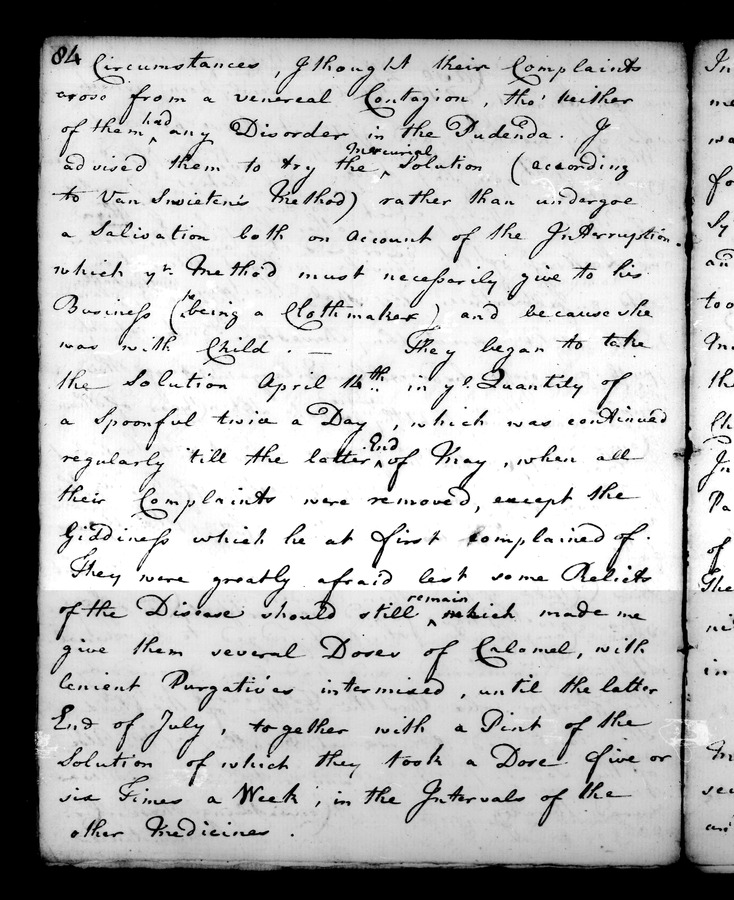 84
Circumstances, I thought their Complaints
arose from a venereal Contagion, tho' neither
of them had any Disorder in the Pudenda. I
advised them to try the Mercurial Solution (according
to Van Swieten's Method) rather than undergoe
a Salivation both on account of the Interruption
which yt. Method must necessarily give to his
Business (he being a Clothmaker) and because she
was with Child. — They began to take
the Solution April 14th. in ye. Quantity of
a Spoonful twice a Day, which was continued
regularly 'till the latter End of May, when all
their Complaints were removed, except the
Giddiness which he at first complained of.
They were greatly afraid lest some Relicts
of the Disease should still remain which made me
give them several Doses of Calomel, with
lenient Purgatives intermixed, until the latter
End of July, together with a Pint of the
Solution of which they took a Dose five or
six Times a Week, in the Intervals of the
other Medicines.